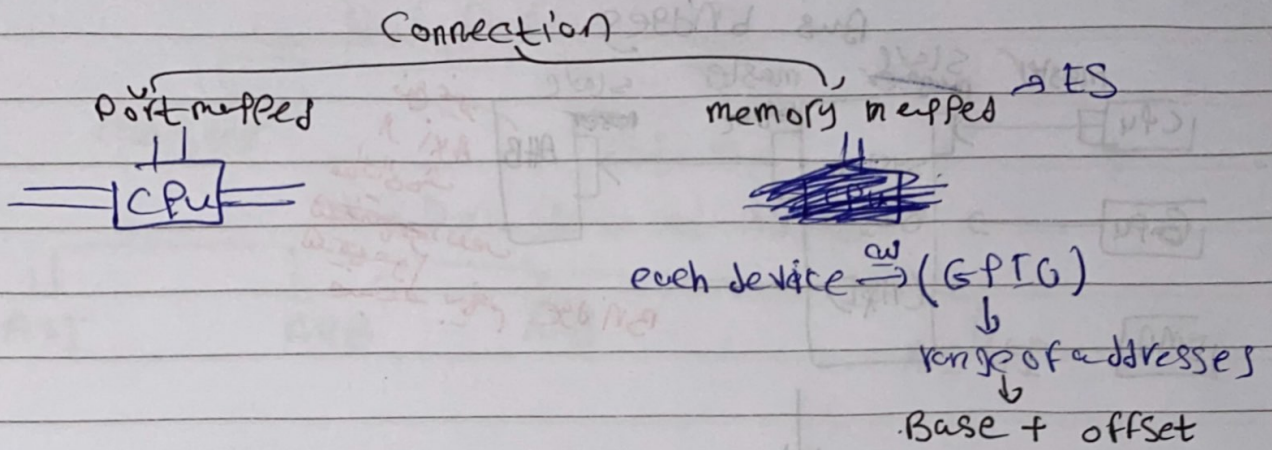 Connection
Port mapped
memory mapped → ES
CPU
each device ⇒ (GPIO)
↓
range of addresses
↓
Base + offset